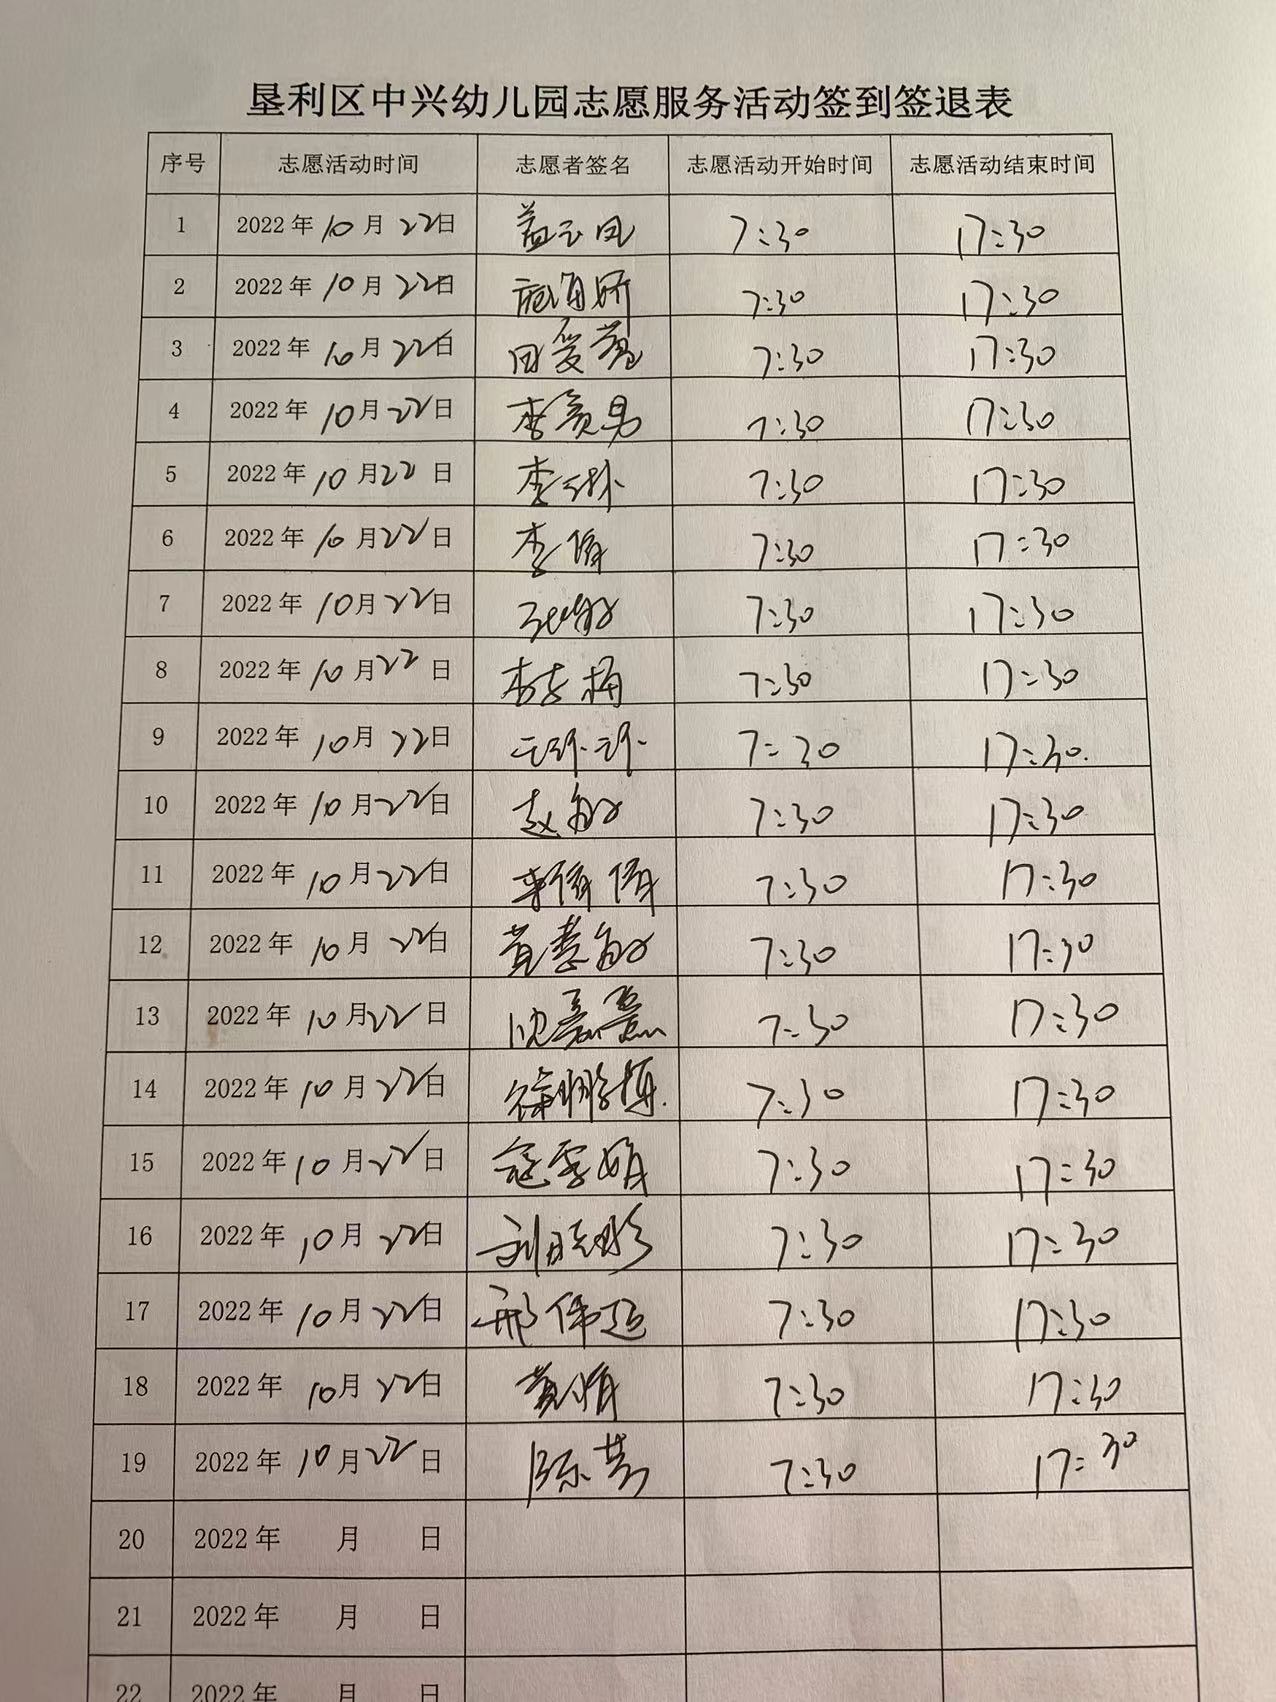 垦利区中兴幼儿园志愿服务活动签到签退表
序号 志愿活动时间 志愿者签名 志愿活动开始时间 志愿活动结束时间
1 2022年10月22日 7:30 17:30
2 2022年10月22日 7:30 17:30
3 2022年10月22日 7:30 17:30
4 2022年10月22日 7:30 17:30
5 2022年10月22日 7:30 17:30
6 2022年10月22日 李倩 7:30 17:30
7 2022年10月22日 7:30 17:30
8 2022年10月22日 7:30 17:30
9 2022年10月22日 王环环 7:30 17:30
10 2022年10月22日 赵敏 7:30 17:30
11 2022年10月22日 李倩倩 7:30 17:30
12 2022年10月22日 黄慧敏 7:30 17:30
13 2022年10月22日 7:30 17:30
14 2022年10月22日 徐鹏博 7:30 17:30
15 2022年10月22日 寇雪娟 7:30 17:30
16 2022年10月22日 刘晓彤 7:30 17:30
17 2022年10月22日 邢伟超 7:30 17:30
18 2022年10月22日 黄倩 7:30 17:30
19 2022年10月22日 陈芳 7:30 17:30
20 2022年 月 日
21 2022年 月 日
22 2022年 月 日